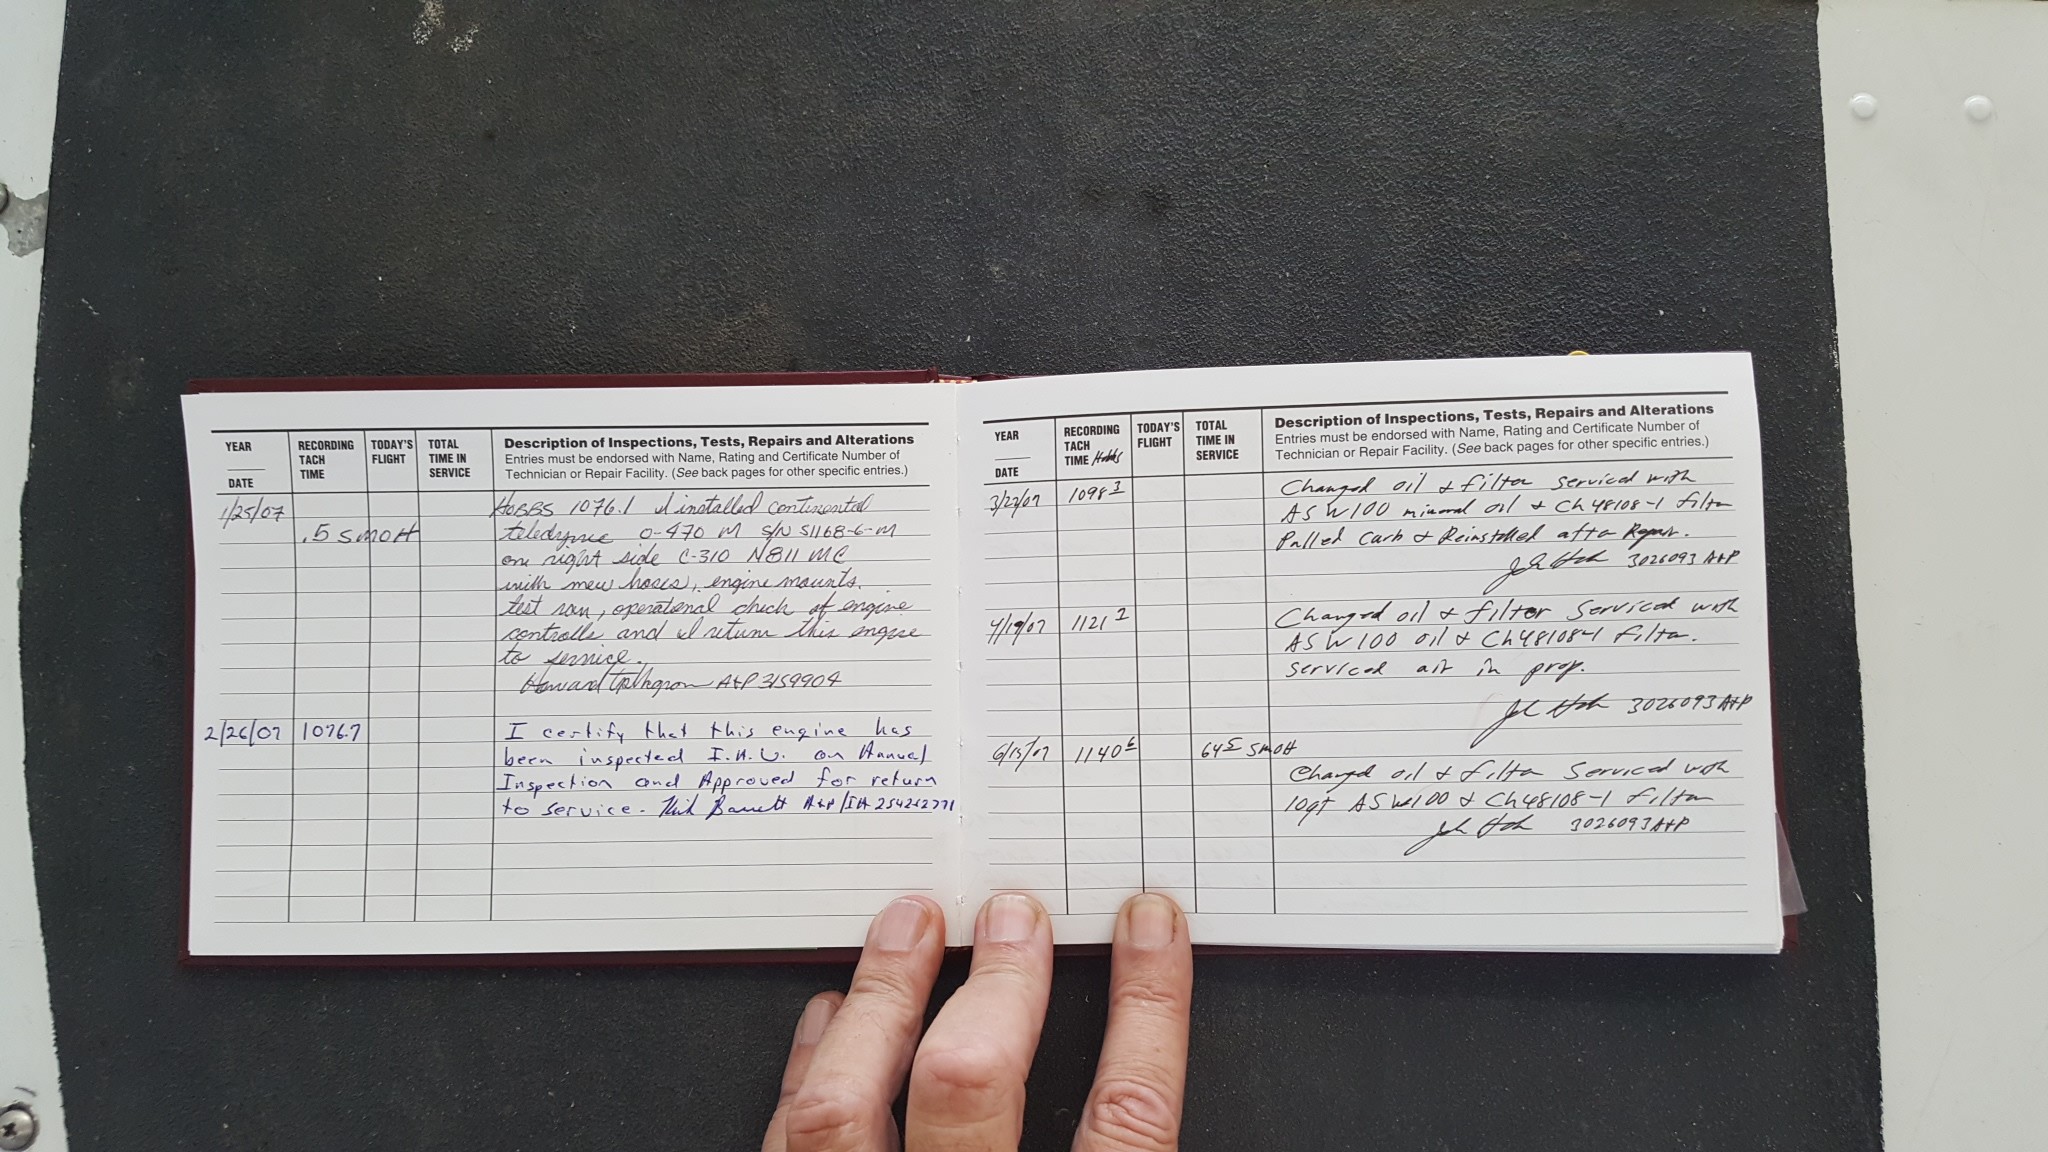 YEAR
DATE
RECORDING TACH TIME
TODAY'S FLIGHT
TOTAL TIME IN SERVICE
Description of Inspections, Tests, Repairs and Alterations
Entries must be endorsed with Name, Rating and Certificate Number of
Technician or Repair Facility. (See back pages for other specific entries.)
1/25/07 HOBBS 1076.1 I installed continental
.5 SMOH teledyne O-470 M S/N 51168-6-M
on right side C-310 N811MC
with new hoses, engine mounts.
test run, operational check of engine
controlls and I return this engine
to service.
Howard A&P 3159904
2/26/07 1076.7 I certify that this engine has
been inspected I.A.W. an Annual
Inspection and Approved for return
to service. Barrett A&P/IA 254262771
YEAR
DATE
RECORDING TACH TIME Hobbs
TODAY'S FLIGHT
TOTAL TIME IN SERVICE
Description of Inspections, Tests, Repairs and Alterations
Entries must be endorsed with Name, Rating and Certificate Number of
Technician or Repair Facility. (See back pages for other specific entries.)
3/22/07 1098 3 Changed oil & filter serviced with
ASW100 mineral oil & Ch48108-1 filter
Pulled carb & Reinstalled after Repair.
3026093 A&P
4/19/07 1121 2 Changed oil & filter serviced with
ASW100 oil & Ch48108-1 filter.
serviced air in prop.
3026093 A&P
6/15/07 1140 6 64 5 SMOH
Changed oil & filter serviced with
10qt ASW100 & Ch48108-1 filter
3026093 A&P